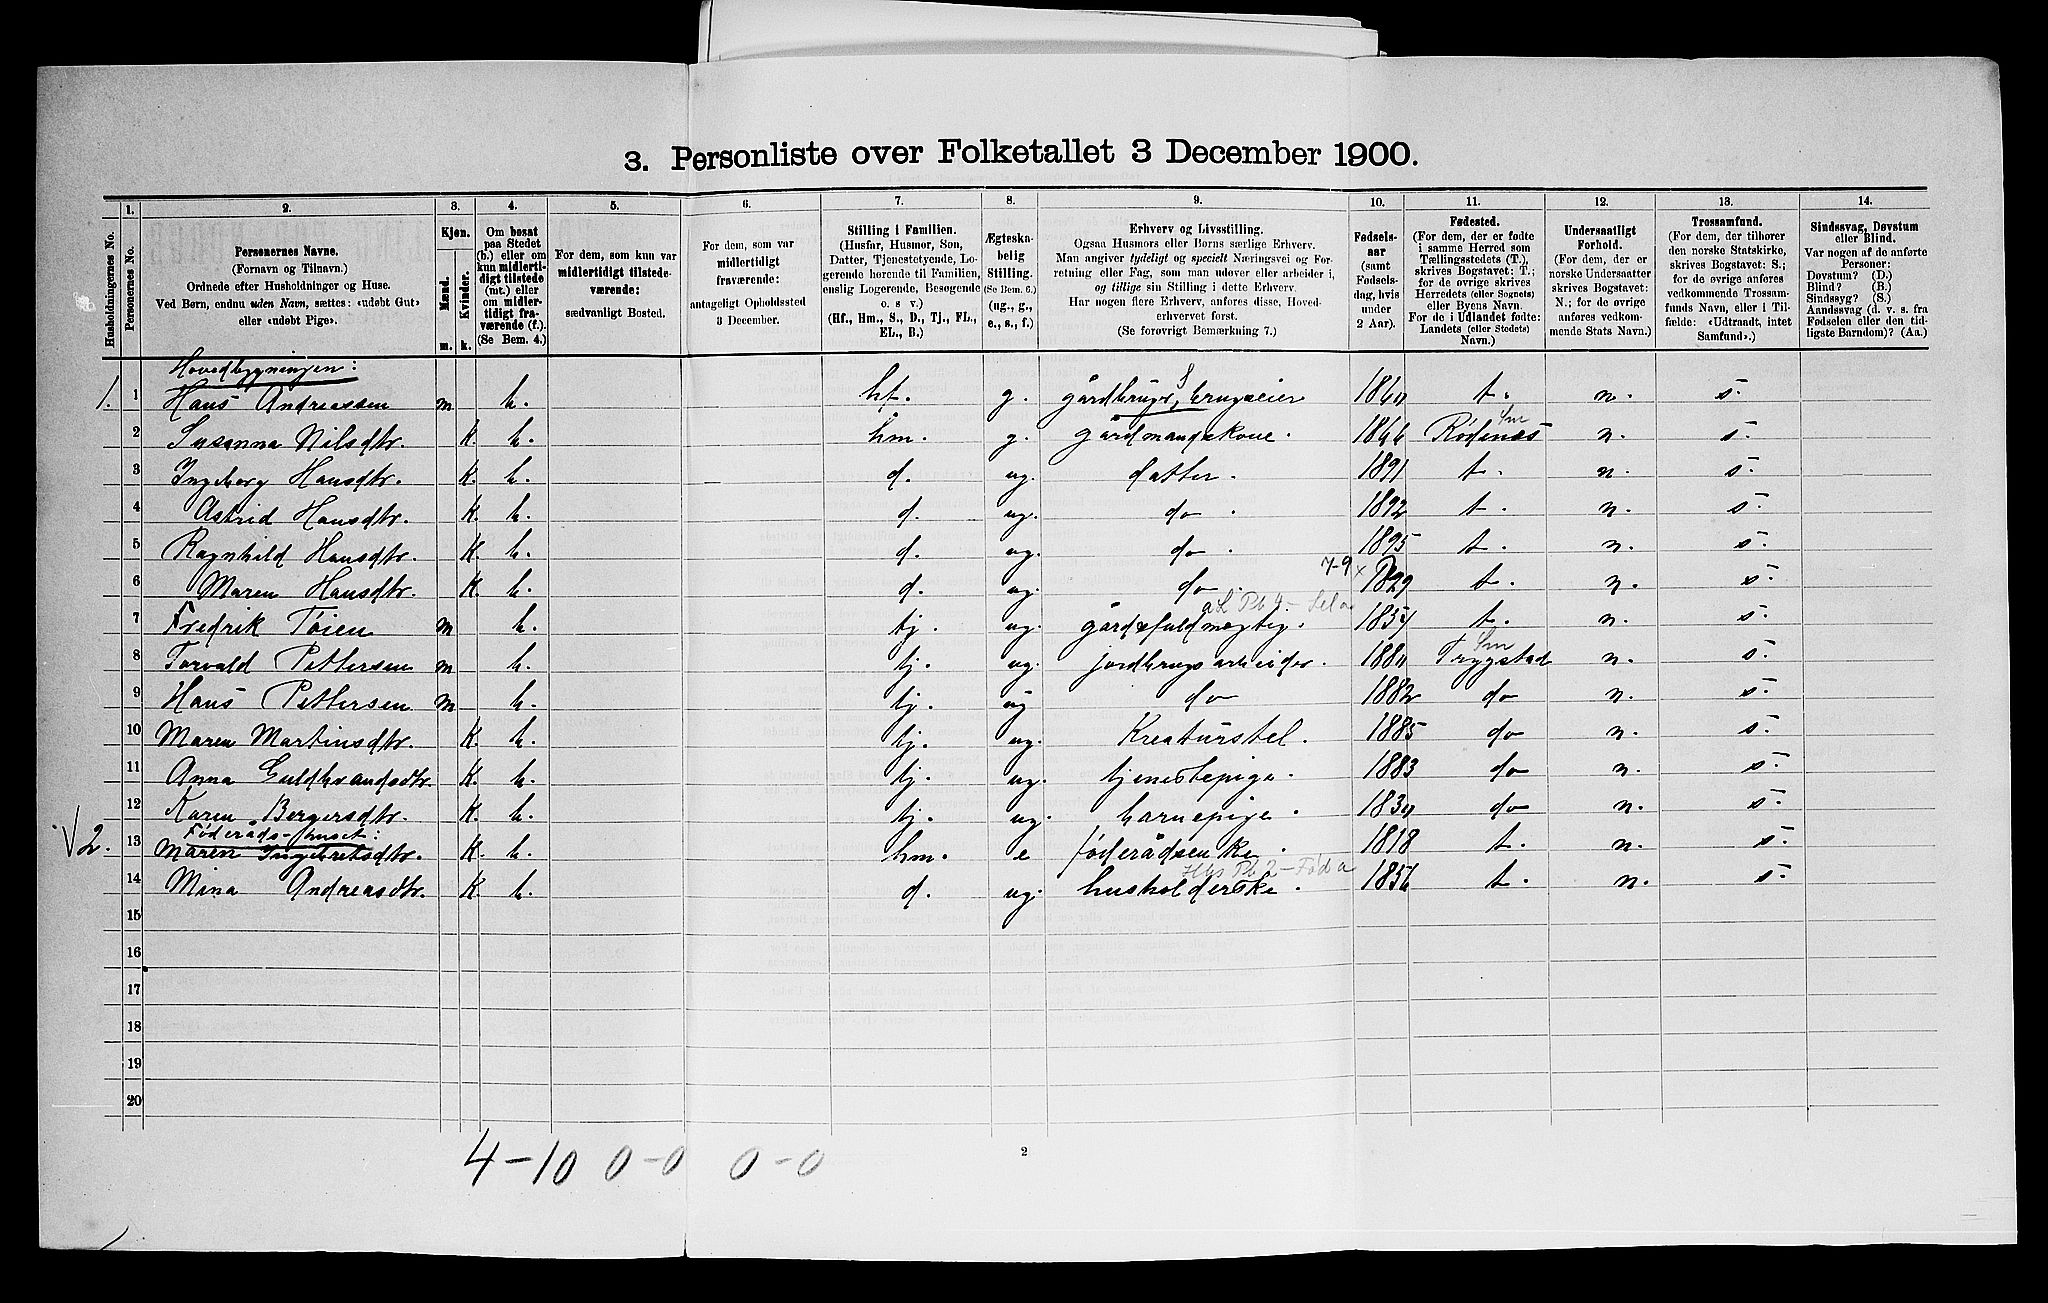 3. Personliste over Folketallet 3 December 1900.
Husholdningernes No.
1.
Personernes No.
2.
Personernes Navne.
(Fornavn og Tilnavn.)
Ordnede efter Husholdninger og Huse.
Ved Børn, endnu uden Navn, sættes: «udøbt Gut»
eller «udøbt Pige».
3.
Kjøn.
Mænd.
Kvinder.
m. k.
4.
Om bosat
paa Stedet
(b.) eller om
kun midlerti-
digt tilstede
(mt.) eller
om midler-
tidigt fra-
værende (f.).
(Se Bem. 4.)
5.
For dem, som kun var
midlertidigt tilstede-
værende:
sædvanligt Bosted.
6.
For dem, som var
midlertidigt
fraværende:
antageligt Opholdssted
3 December.
7.
Stilling i Familien.
(Husfar, Husmor, Søn,
Datter, Tjenestetyende, Lo-
gerende hørende til Familien,
enslig Logerende, Besøgende
o. s v.)
(Hf., Hm., S., D., Tj., FL.,
EL., B.)
8.
Ægteska-
belig
Stilling.
(Se Bem. 6.)
(ug., g.,
e., s., f.)
9.
Erhverv og Livsstilling.
Ogsaa Husmors eller Børns særlige Erhverv.
Man angiver tydeligt og specielt Næringsvei og For-
retning eller Fag, som man udøver eller arbeider i,
og tillige sin Stilling i dette Erhverv.
Har nogen flere Erhverv, anføres disse, Hoved-
erhvervet først.
(Se forøvrigt Bemærkning 7.)
10.
Fødsels-
aar
(samt
Fødsels-
dag, hvis
under
2 Aar).
11.
Fødested.
(For dem, der er fødte
i samme Herred som
Tællingsstedets (T.),
skrives Bogstavet: T.;
for de øvrige skrives
Herredets (eller Sognets)
eller Byens Navn.
For de i Udlandet fødte:
Landets (eller Stedets)
Navn.)
12.
Undersaatligt
Forhold.
(For dem, der er
norske Undersaatter
skrives Bogstavet:
N.; for de øvrige
anføres vedkom-
mende Stats Navn.)
13.
Trossamfund.
(For dem, der tilhører
den norske Statskirke,
skrives Bogstavet: S.;
for de øvrige anføres
vedkommende Trossam-
funds Navn, eller i Til-
fælde: «Udtraadt, intet
Samfund».)
14.
Sindssvag, Døvstum
eller Blind.
Var nogen af de anførte
Personer:
Døvstum? (D.)
Blind? (B.)
Sindssyg? (S.)
Aandssvag (d. v. s. fra
Fødselen eller den tid-
ligste Barndom)? (Aa.)
Hovedbygningen:
1. 1 Hans Andreassen m b. hf. g. gårdbruger, brugseier 1860 t. n. s.
2 Susanna Nilsdtr. K. b. hm. g. gårdmandskone. 1866 Rødenes n. s.
3 Ingeborg Hansdtr. K. b. d. ug. datter. 1891 t. n. s.
4 Astrid Hansdtr. K. b. d. ug. do. 1892 t. n. s.
5 Ragnhild Hansdtr. K. b. d. ug. do. 1895 t. n. s.
7-9 x
6 Maren Hansdtr. K. b. d. ug. do. t. n. s.
7 Fredrik Töien m b. tj. ug. gårdsfuldmægtig. 1857 t. n. s.
8 Torvald Pettersen m b. tj. ug. jordbrugsarbeider. 1880 Trygstad n. s.
9 Hans Pettersen m b. tj. ug do 1882 do n. s.
10 Maren Martinsdtr. K. b. tj. ug. Kreaturstel. 1885 do n. s.
11 Anna Guldbrandsdtr. K. b. tj. ug. tjenestepige. 1883 do n. s.
12 Karen Bergersdtr. K. b. tj. ug. barnepige. 1830 do n. s.
Føderåds-huset:
2. 13 Maren Ingebretsdtr. K. b. hm. e føderådsenke. 1818 t. n. s.
14 Mina Andreasdtr. K. b. d. ug. husholderske. 1856 t. n. s.
15
16
17
18
19
20
4-10 0-0 0-0
2